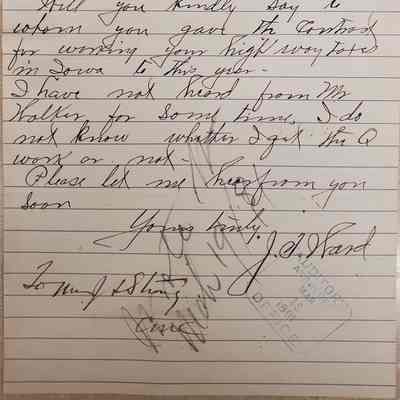 Will you kindly say to
whom you gave the Contract
for working your high way taxes
in Iowa to this year -
I have not heard from Mr
Walker for some time, I do
not know whether I get the Q
work or not -
Please let me hear from you
soon
Yours truly.
J. S. Ward
To
AUDITOR
MAR
OFFICE